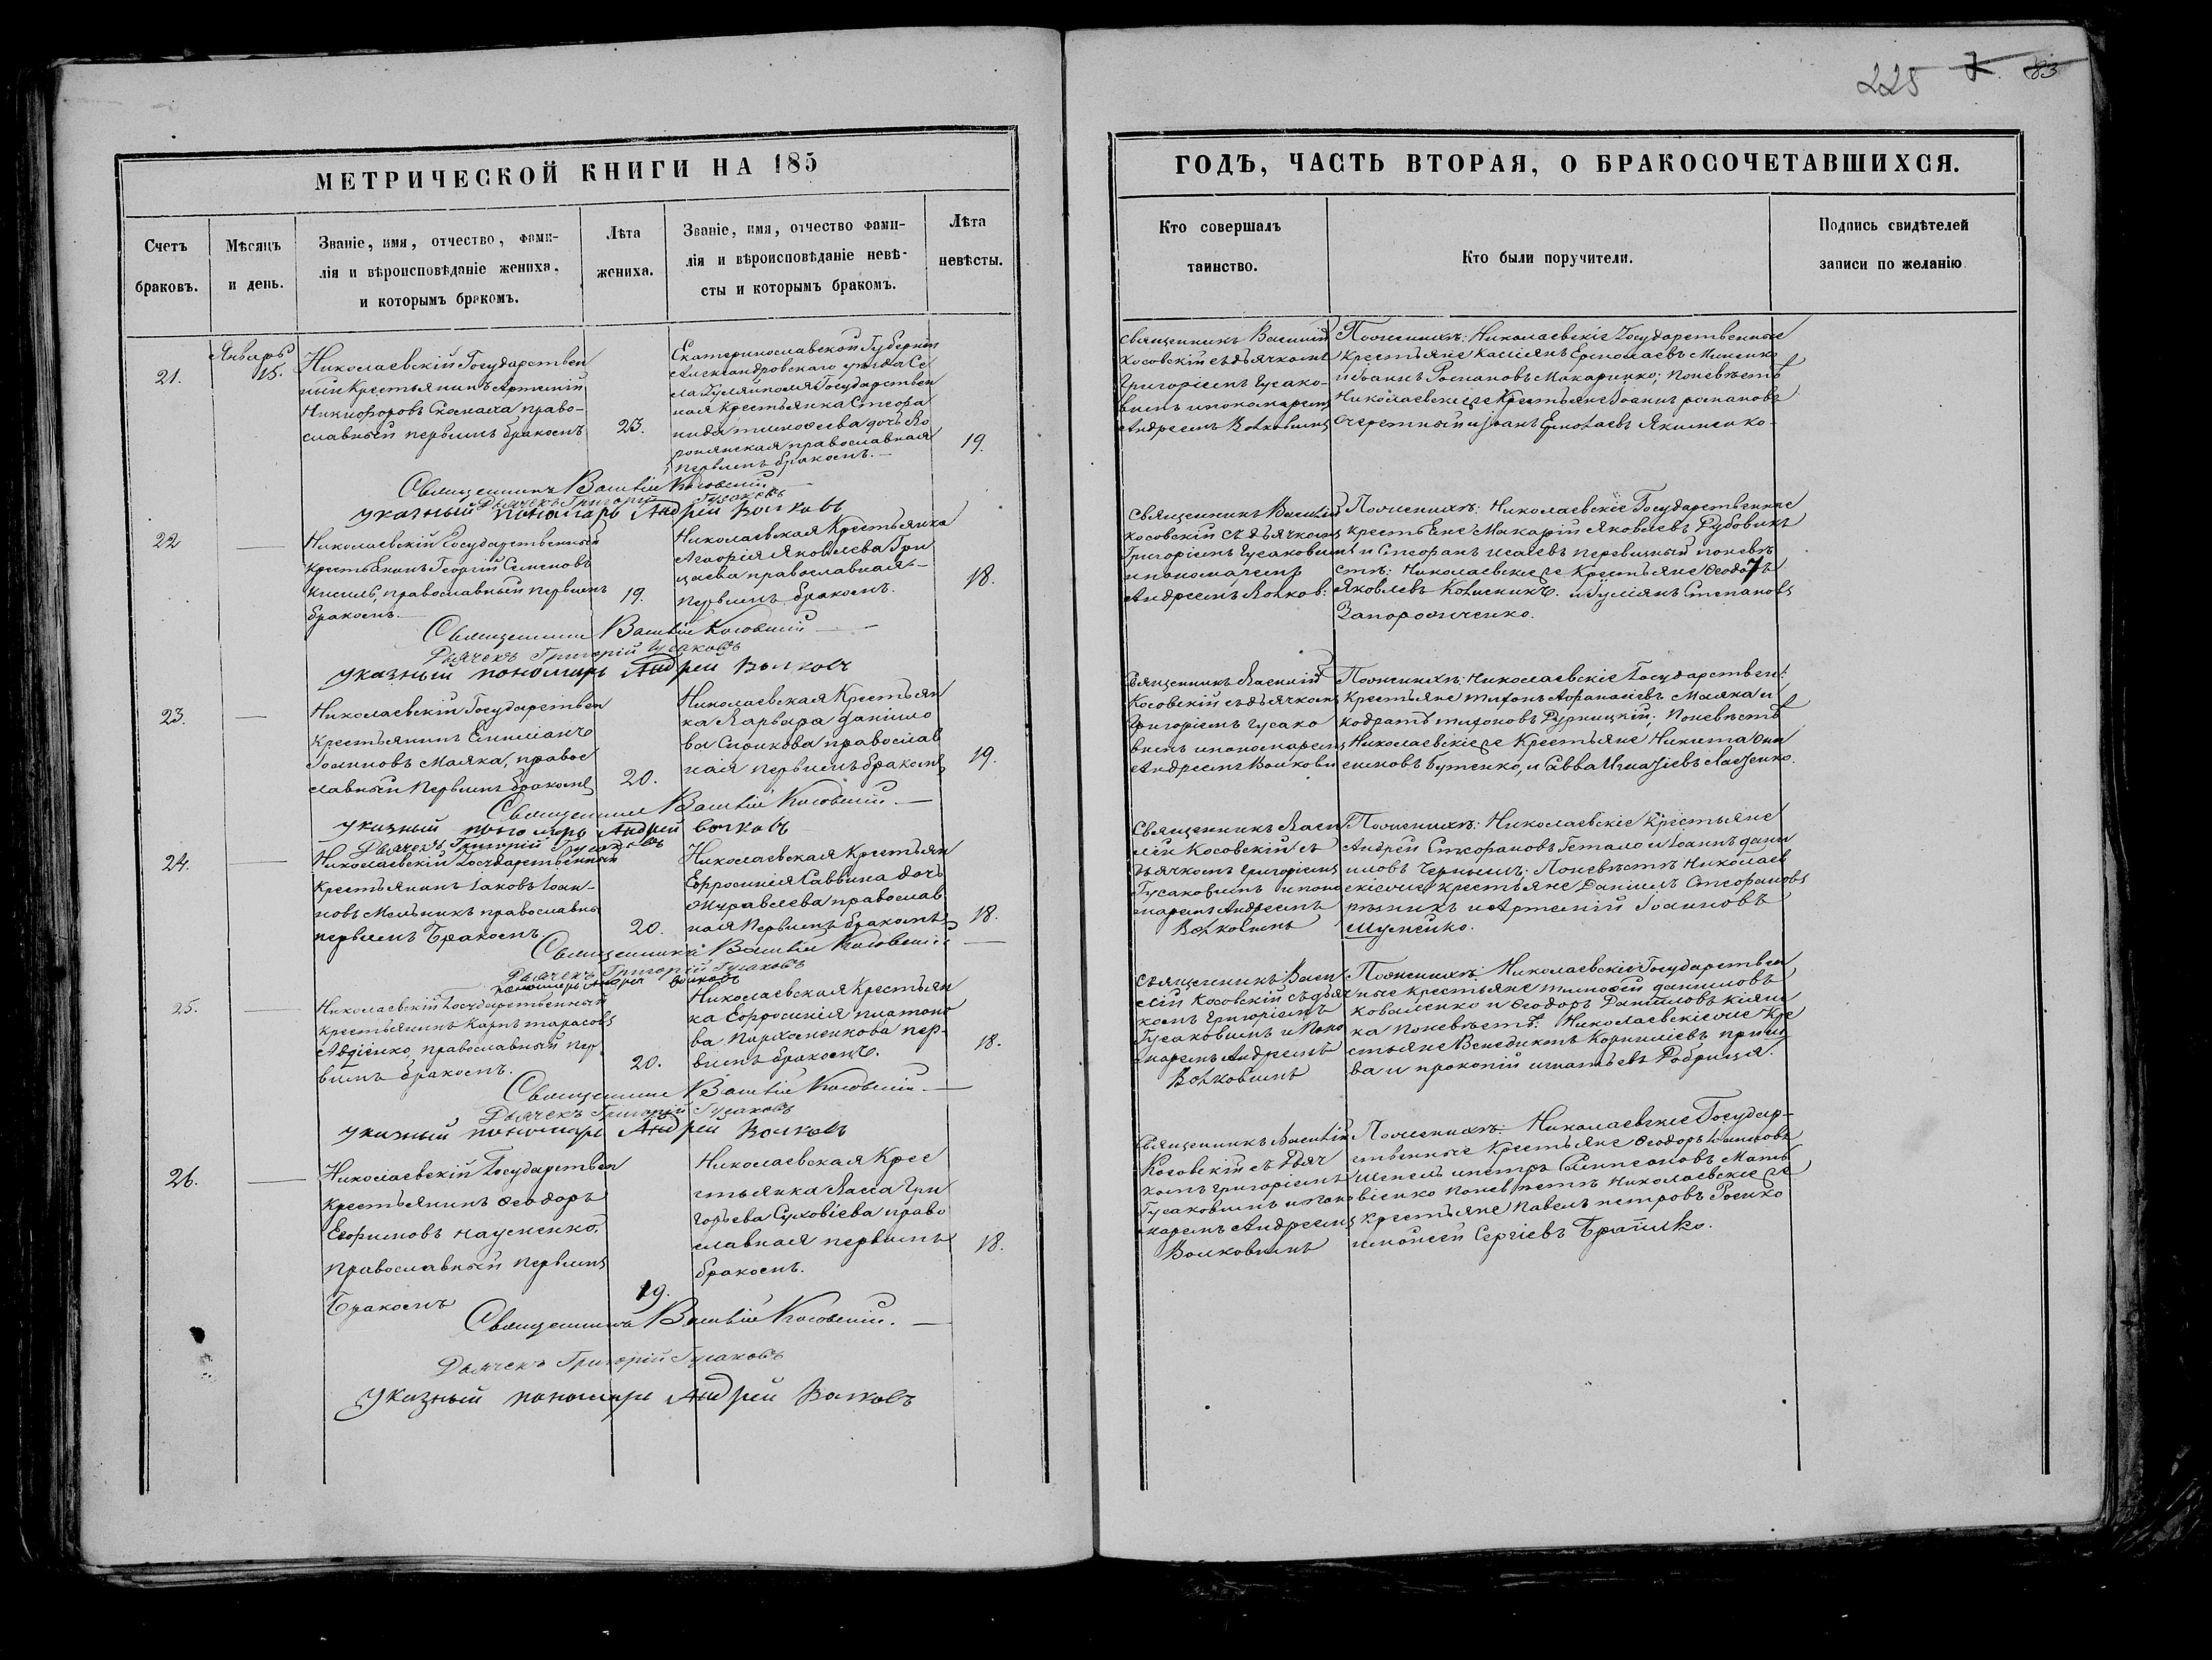 225 7. 83
МЕТРИЧЕСКОЙ КНИГИ НА 185
Счетъ браковъ.
Мѣсяцъ и день.
Званіе, имя, отчество, фами-
лія и вѣроисповѣданіе жениха,
и которымъ бракомъ.
Лѣта жениха.
Званіе, имя, отчество фами-
лія и вѣроисповѣданіе невѣ-
сты и которымъ бракомъ.
Лѣта невѣсты.
21.
Январь
15.
Николаевскій Государствен
ный Крестьянинъ Артемій
Никифоровъ право-
славный первымъ бракомъ
23.
Екатеринославской Губерніи
Александровскаго уѣзда Се
ла Гуляйполя Государствен
ная Крестьянка Стефа
нида тимофеева дочь Во
православная
первымъ бракомъ.
19.
Священникъ Василій Косовскій
Дьячекъ Григорій Гусаковъ
указный пономарь Андрей Волковъ
22
Николаевскій Государственный
Крестьянинъ Георгій Семеновъ
Кисиль, православный первымъ
бракомъ.
19.
Николаевская Крестьянка
Агафія Яковлева Гри
цаева православная
первымъ бракомъ.
18.
Священникъ Василій Косовскій
Дьячекъ Григорій Гусаковъ
указный пономарь Андрей Волковъ
23.
Николаевскій Государствен
Крестьянинъ Емиліанъ
Іоанновъ Маяка, правос
лавный первымъ бракомъ
20.
Николаевская Крестьян
ка Варвара данило
ва православ
ная первымъ бракомъ
19.
Священникъ Василій Косовскій
указный пономарь Андрей волковъ
Дьячекъ Григорій Гусаковъ
24.
Николаевскій Государственный
Крестьянинъ Іаковъ Іоан-
новъ Мельникъ православный
первымъ Бракомъ.
20.
Николаевская Крестьян
Ефросинія Саввина дочь
Журавлева православ
ная Первымъ бракомъ
18.
Священникъ Василій Косовскій
Дьячекъ Григорій Гусаковъ
пономарь Андрей волковъ
25.
Николаевскій Государственный
крестьянинъ Карпъ тарасовъ
Авдіенко православный пер
вымъ бракомъ.
20.
Николаевская Крестьян
ка Ефросинія платоно
ва Пархоменкова пер-
вымъ бракомъ.
18.
Священникъ Василій Косовскій
Дьячекъ Григорій Гусаковъ
указный пономарь Андрей Волковъ
26.
Николаевскій Государствен
Крестьянинъ Феодоръ
Ефимовъ Науменко,
Православный Первымъ
Бракомъ
19.
Николаевская Крес
тьянка Васса Гри
горьева Суховіева право
славная первымъ
бракомъ.
18.
Священникъ Василій Косовскій.
Дьячекъ Григорій Гусаковъ
указный пономарь Андрей Волковъ
ГОДЪ, ЧАСТЬ ВТОРАЯ, О БРАКОСОЧЕТАВШИХСЯ.
Кто совершалъ таинство.
Кто были поручители.
Подпись свидѣтелей
записи по желанію
священникъ Василій
Косовскій съ дьячкомъ
Григоріемъ Гусако-
вымъ и пономаремъ
Андреемъ Волковымъ
По женихѣ: Николаевскіе Государственные
Крестьяне Касіянъ Ермолаевъ
и Іоаннъ Романовъ Макаренко; По невѣстѣ
Николаевскіе же Крестьяне Іоаннъ романовъ
Очеретный и Іоанъ Ермолаевъ Якименко.
священникъ Василій
косовскій съ дьячкомъ
Григоріемъ Гусаковымъ
и пономаремъ
Андреемъ Волков:
По женихѣ: Николаевскіе Государственные
крестьяне Макарій Яковлевъ Дубовикъ
и Стефанъ исаевъ перевизный по невѣ
стѣ: Николаевские же Крестьяне Феодоръ
Яковлевъ и Гуліянъ Степановъ
Запорожченко.
Священникъ Василій
Косовскій съ дьячкомъ
Григоріемъ Гусако
вымъ и пономаремъ
Андреемъ Волковы
По женихѣ: Николаевскіе Государствен:
Крестьяне тихонъ Афанасіевъ Маяка и
кодратъ тихоновъ Дурницкій; По невѣстѣ
Николаевскіе же Крестьяне Никита
Бутенко, и Савва Игнатіевъ
Священникъ Васи
лій Косовскій съ
дьячкомъ григоріемъ
Гусаковымъ и поно
маремъ Андреемъ
Волковымъ
По женихѣ: Николаевскіе Крестьяне
Андрей Стефановъ Гетало и Іоаннъ дани
иловъ По невѣстѣ Николаев
скіе же крестьяне Даніилъ Стефановъ
рѣзникъ и Артемій Іоанновъ
священникъ Васи
лій Косовскій съ дьяч
комъ Григоріемъ
Гусаковымъ и Поно
маремъ Андреемъ
Волковымъ
По женихѣ Николаевскіе Государствен
ные крестьяне тимофей даниловъ
коваленко и Феодоръ Даниловъ княж
ка По невѣстѣ: Николаевскіе же Кре
стьяне Венедиктъ Корниліевъ
ва и прокопій игнатьевъ
Священникъ Василій
Косовскій съ Дьяч
комъ григоріемъ
Гусаковымъ и поно
маремъ Андреемъ
Волковымъ
По женихѣ: Николаевскіе Государ-
ственные Крестьяне Феодоръ Іоанновъ
Шепель и петръ Мать
віенко По невѣстѣ Николаевскіе же
крестьяне Павелъ петровъ
и моисей Сергіевъ